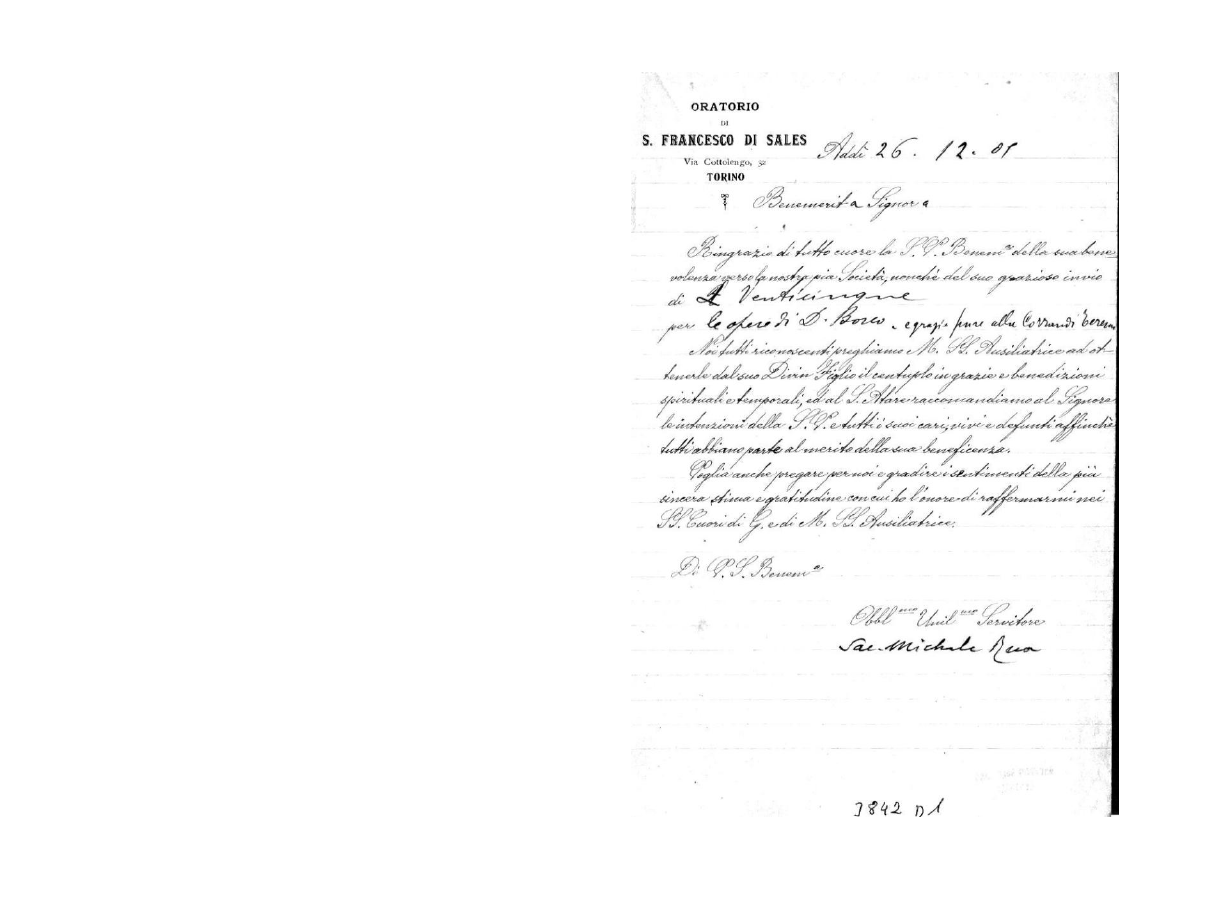 ORATORIO
DI
S. FRANCESCO DI SALES
Via Cottolengo, 32
TORINO
Addì 26. 12. 01
Benemerita Signora
Ringrazio di tutto cuore la S. V. Benem.ª della sua bene
volenza verso la nostra pia Società, nonchè del suo grazioso invio
di £ Venticinque
per le opere di D. Bosco - e grazie pure alla
Noi tutti riconoscenti preghiamo M. SS. Ausiliatrice ad ot-
tenerle dal suo Divin Figlio il centuplo in grazie e benedizioni
spirituali e temporali, ed al S. Altare raccomandiamo al Signore
le intenzioni della S. V. e tutti i suoi cari, vivi e defunti affinchè
tutti abbiano parte al merito della sua beneficenza.
Voglia anche pregare per noi e gradire i sentimenti della più
sincera stima e gratitudine con cui ho l'onore di raffermarmi nei
SS. Cuori di G. e di M. SS. Ausiliatrice.
Di V. S. Benem.ª
Obbl.mo Umil.mo Servitore
Sac. Michele Rua
3842 D1